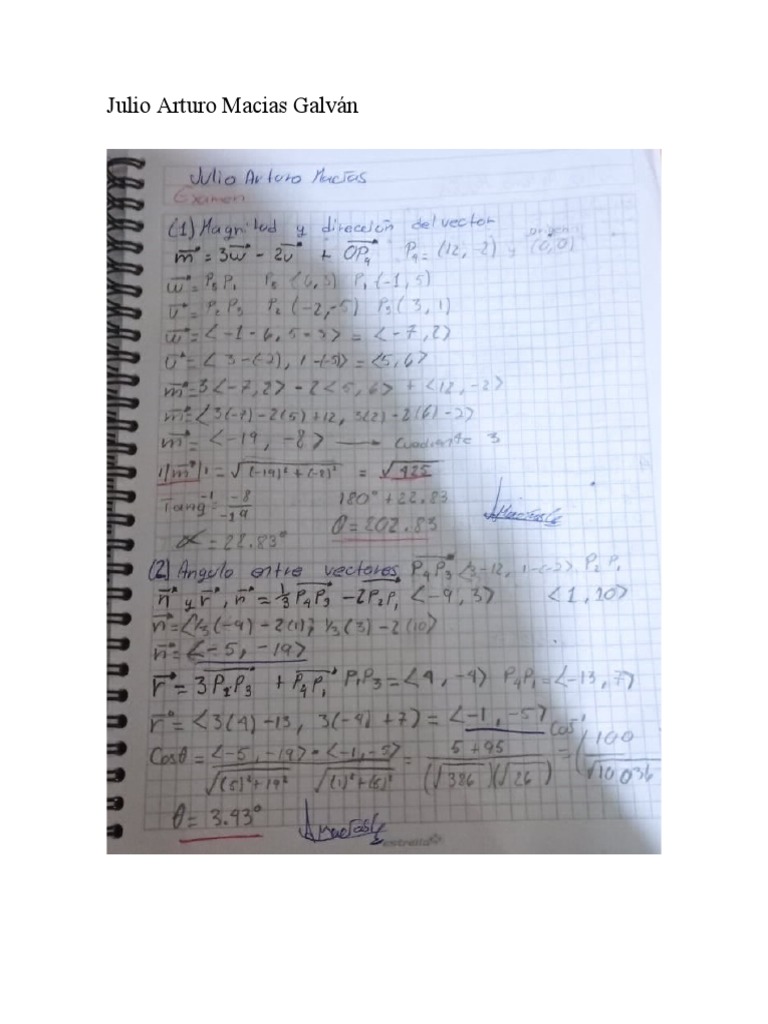 Julio Arturo Macias Galván
Julio Arturo Macías
Examen
(1) Magnitud y dirección del vector
m⃗ = 3w⃗ - 2v⃗ + OP₄ P₄= (12, -2) y origen (0,0)
w⃗ = P₅P₁ P₅ (6,3) P₁(-1,5)
v⃗ = P₂P₃ P₂ (-2,-5) P₃(3,1)
w⃗ = <-1-6, 5-3> = <-7,2>
v⃗ = <3-(-2), 1-(-5)> = <5,6>
m⃗ = 3<-7,2> - 2<5,6> + <12,-2>
m⃗ = <3(-7)-2(5)+12, 3(2)-2(6)-2>
m⃗ = <-19, -8> → Cuadrante 3
||m⃗|| = √(-19)²+(-8)² = √425
Tang⁻¹ = -8/-19 180° + 22.83
α = 22.83° θ = 202.83
(2) Angulo entre vectores P₄P₃ <3-12, 1-(-2)> P₂P₁
n⃗ y r⃗, n⃗ = 1/3 P₄P₃ - 2P₂P₁ <-9,3> <1,10>
n⃗ = <1/3(-9) - 2(1), 1/3(3) - 2(10)
n⃗ = <-5, -19>
r⃗ = 3P₂P₃ + P₄P₁ P₁P₃ = <4,-4> P₄P₁ = <-13,7>
r⃗ = <3(4)-13, 3(-4)+7> = <-1,-5>
Cosθ = <-5,-19> • <-1,-5> / √(5)²+19² √(1)²+(5)² = 5+95 / (√386)(√26) = Cos⁻¹(100/√10036
θ = 3.93°